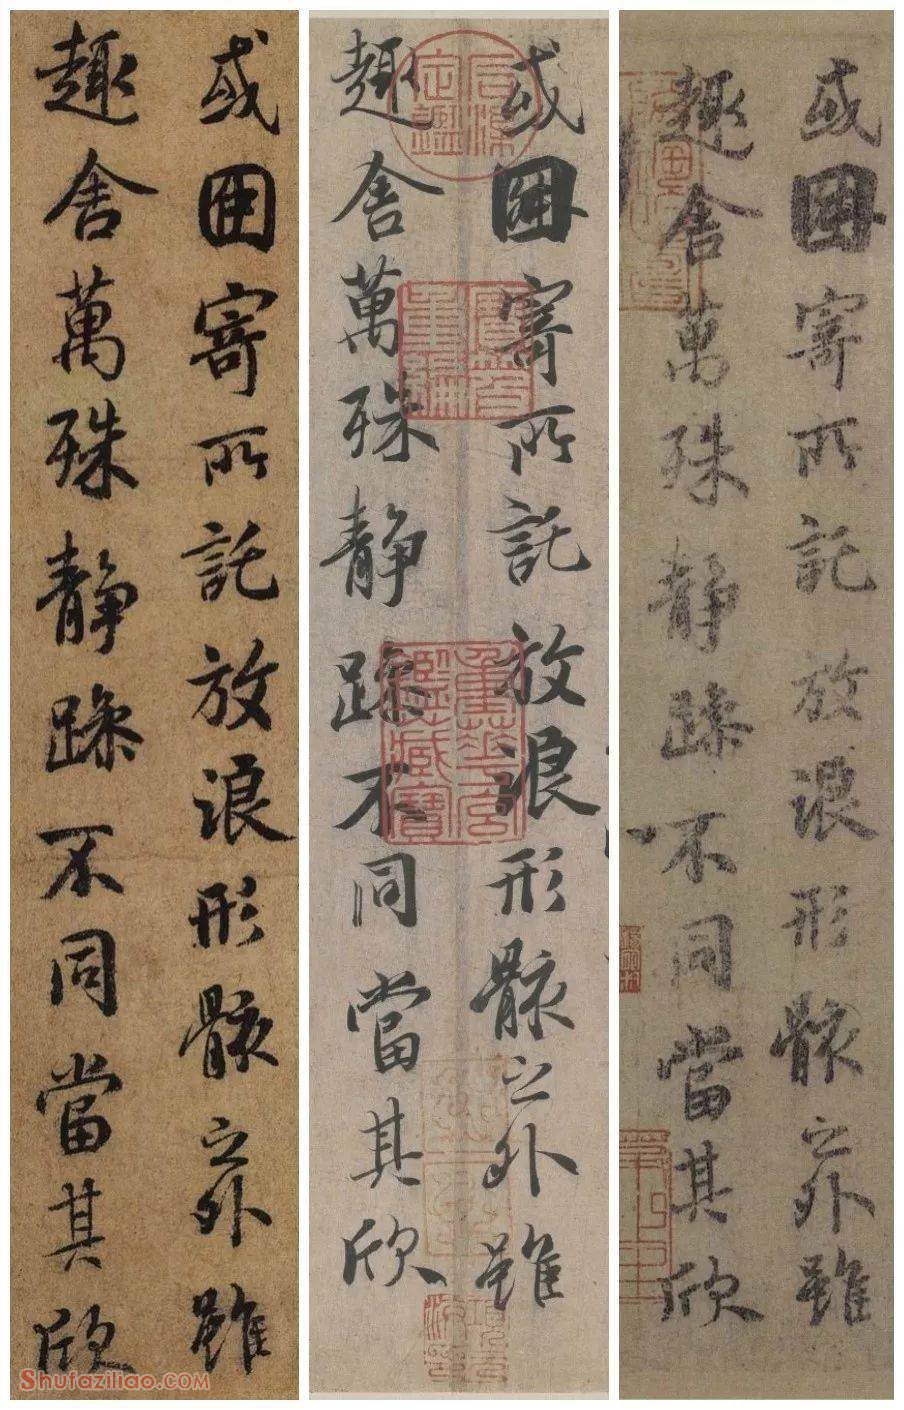 或因寄所託放浪形骸之外雖
趣舍萬殊靜躁不同當其欣
或因寄所託放浪形骸之外雖
趣舍萬殊靜躁不同當其欣
石渠定鑑
寶笈重編
重華宮鑑藏寶
或因寄所託放浪形骸之外雖
趣舍萬殊靜躁不同當其欣
Shufaziliao.com